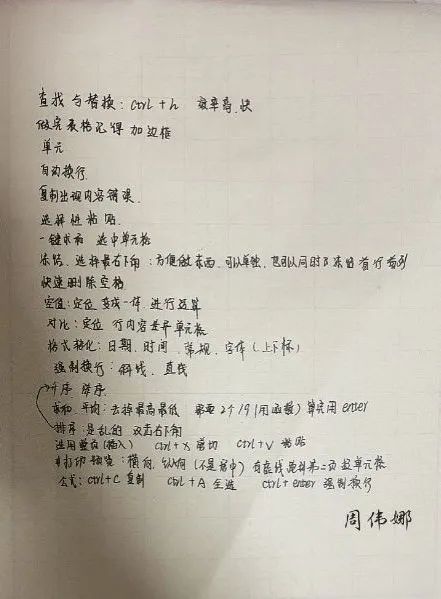 查找与替换：ctrl+h 效率高、快
做完表格记得加边框
单元
自动换行
复制出现内容错误
选择性粘贴
一键求和 选中单元格
冻结，选择最右下角：方便做东西，可以单独，也可以同时冻结首行首列
快速删除空格
空值：定位 变成一样 进行运算
对比：定位 行内容差异单元格
格式转化：日期、时间、常规、字体（上下标）
强制换行：斜线、直线
升序 降序
求和、平均：去掉最高最低 算完用 enter
排序：是乱的 双击右下角
（插入） ctrl+X 剪切 ctrl+V 粘贴
打印预览：横向、纵向（不是居中）
公式：ctrl+C 复制 ctrl+A 全选 ctrl+enter 强制换行
周伟娜